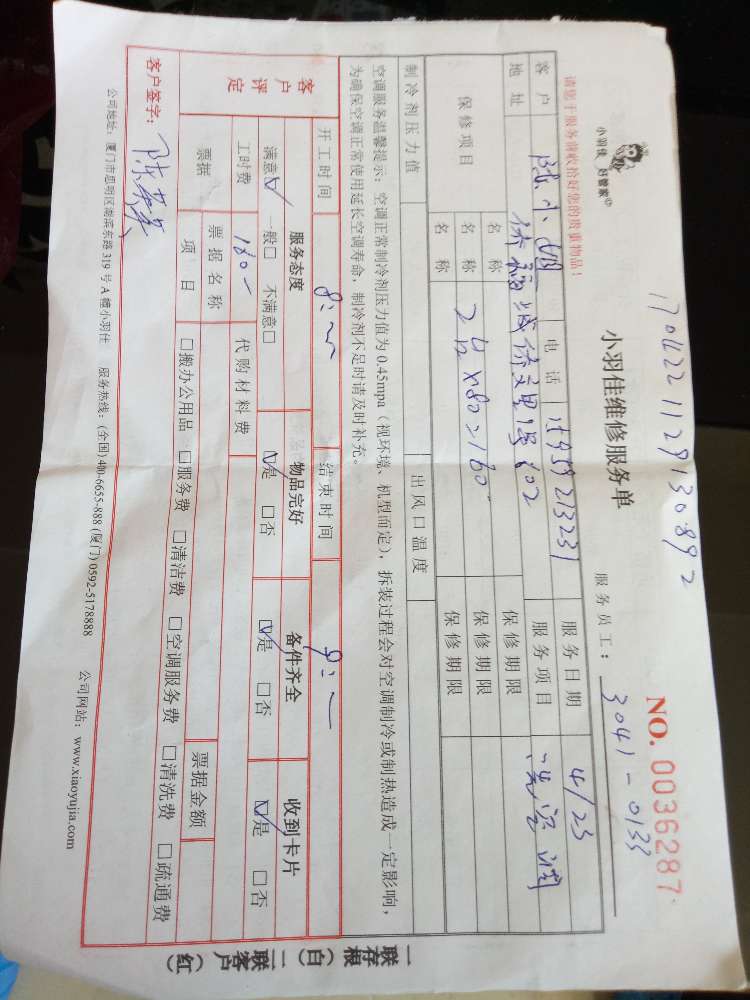 170422112913089２
小羽佳 好管家
小羽佳维修服务单
NO. 0036287
请您于服务前收拾好您的贵重物品！
服务员工： 3041-0133
客户 陈小姐 电话 15959213231 服务日期 4/23
地址 602 服务项目 洗空调
保修项目 名称 保修期限
名称 保修期限
名称 2台x80=160 保修期限
制冷剂压力值 出风口温度
空调服务温馨提示：空调正常制冷剂压力值为0.45mpa（视环境、机型而定），拆装过程会对空调制冷或制热造成一定影响，
为确保空调正常使用延长空调寿命，制冷剂不足时请及时补充。
开工时间 结束时间
客户评定 服务态度 物品完好 备件齐全 收到卡片
满意☑ 一般□ 不满意□ ☑是 □否 ☑是 □否 ☑是 □否
工时费 160- 代购材料费
票据 票据名称 票据金额
项目 □搬办公用品 □服务费 □清洁费 □空调服务费 □清洗费 □疏通费
客户签字：
公司地址：厦门市思明区湖滨东路319号A幢小羽佳 服务热线：(全国)400-6655-888 (厦门)0592-5178888 公司网站：www.xiaoyujia.com
一联存根（白）二联客户（红）